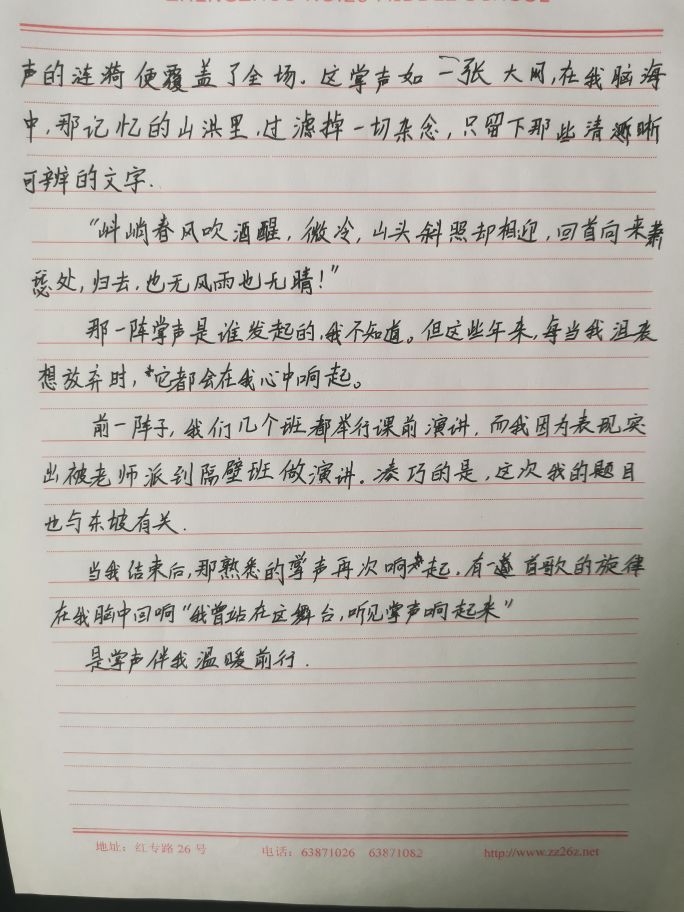 声的涟漪便覆盖了全场。这掌声如一张大网,在我脑海
中,那记忆的山洪里,过滤掉一切杂念,只留下那些清晰
可辨的文字.
"峭峭春风吹酒醒,微冷,山头斜照却相迎,回首向来萧
瑟处,归去,也无风雨也无晴!"
那一阵掌声是谁发起的,我不知道。但这些年来,每当我沮丧
想放弃时,它都会在我心中响起。
前一阵子,我们几个班都举行课前演讲,而我因为表现突
出被老师派到隔壁班做演讲。凑巧的是,这次我的题目
也与东坡有关.
当我结束后,那熟悉的掌声再次响起,有一首歌的旋律
在我脑中回响"我曾站在这舞台,听见掌声响起来"
是掌声伴我温暖前行.
地址:红专路26号 电话:63871026 63871082 http://www.zz26z.net